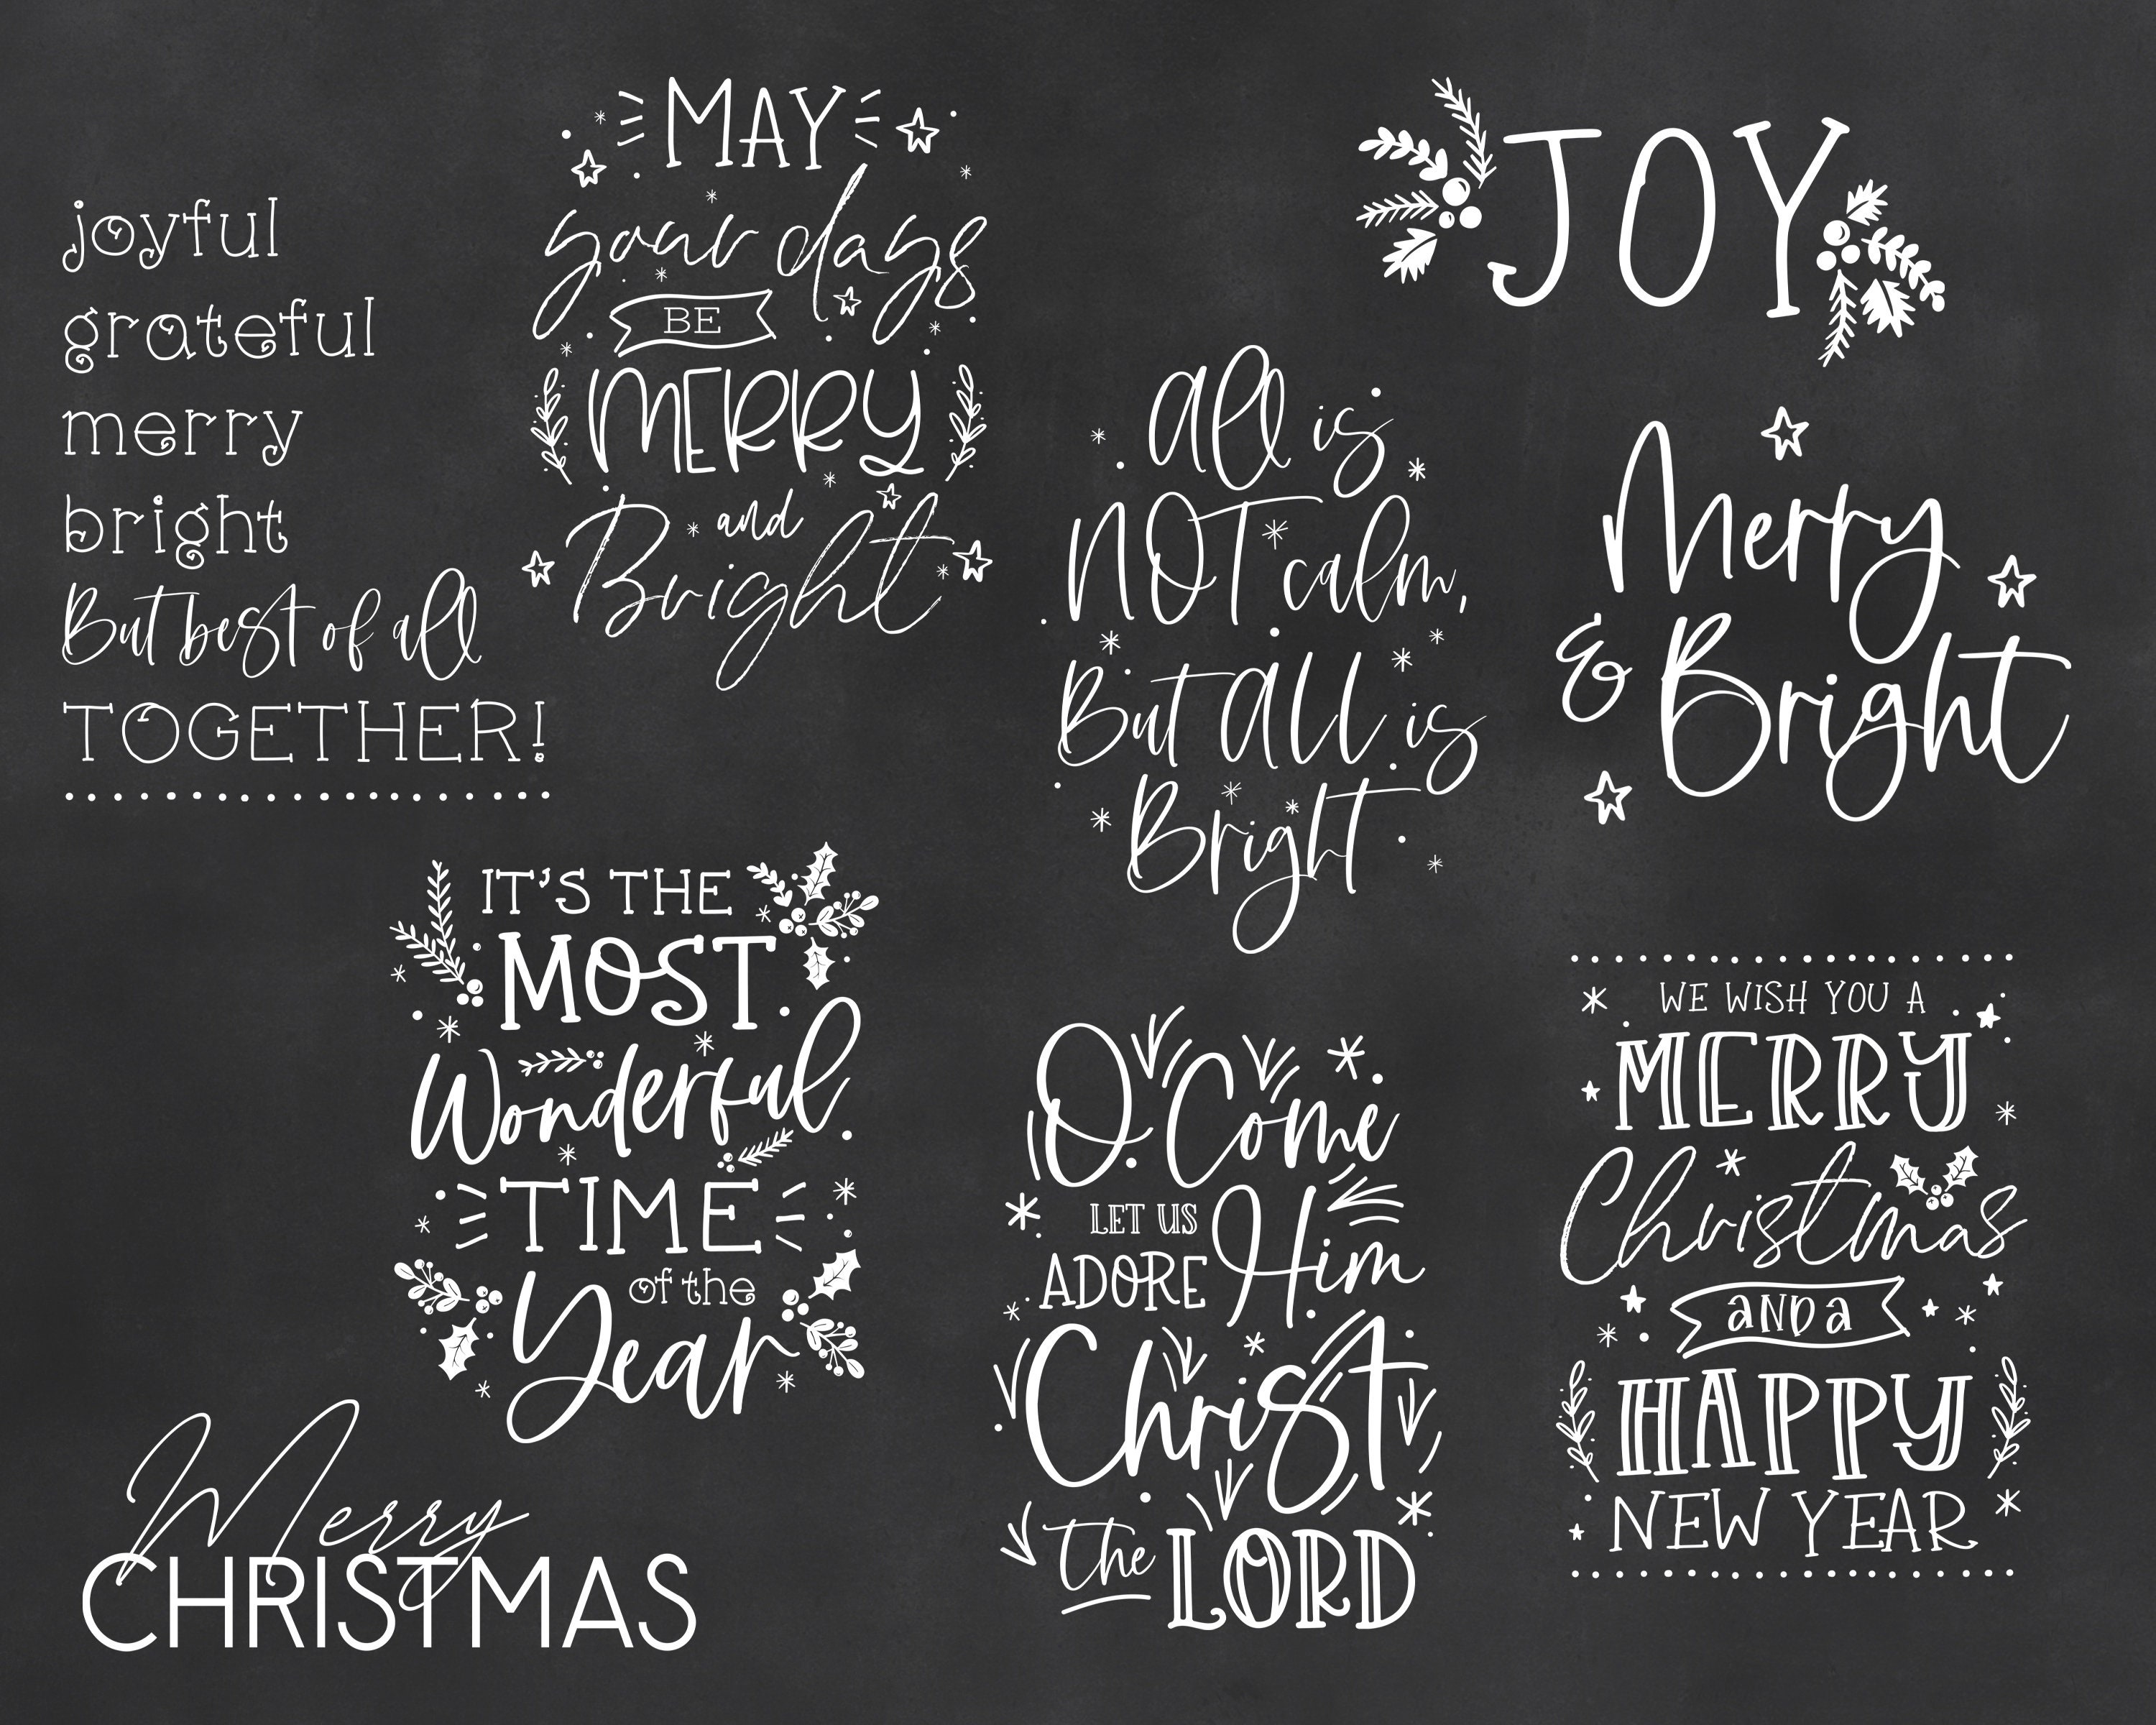 joyful
grateful
merry
bright
But best of all
TOGETHER!
MAY
your days
BE
MERRY
and
Bright
JOY
all is
NOT calm,
But all is
Bright
Merry
& Bright
IT'S THE
MOST
Wonderful
TIME
of the
Year
O Come
LET US
ADORE Him
Christ
the LORD
WE WISH YOU A
MERRY
Christmas
AND a
HAPPY
NEW YEAR
Merry
CHRISTMAS